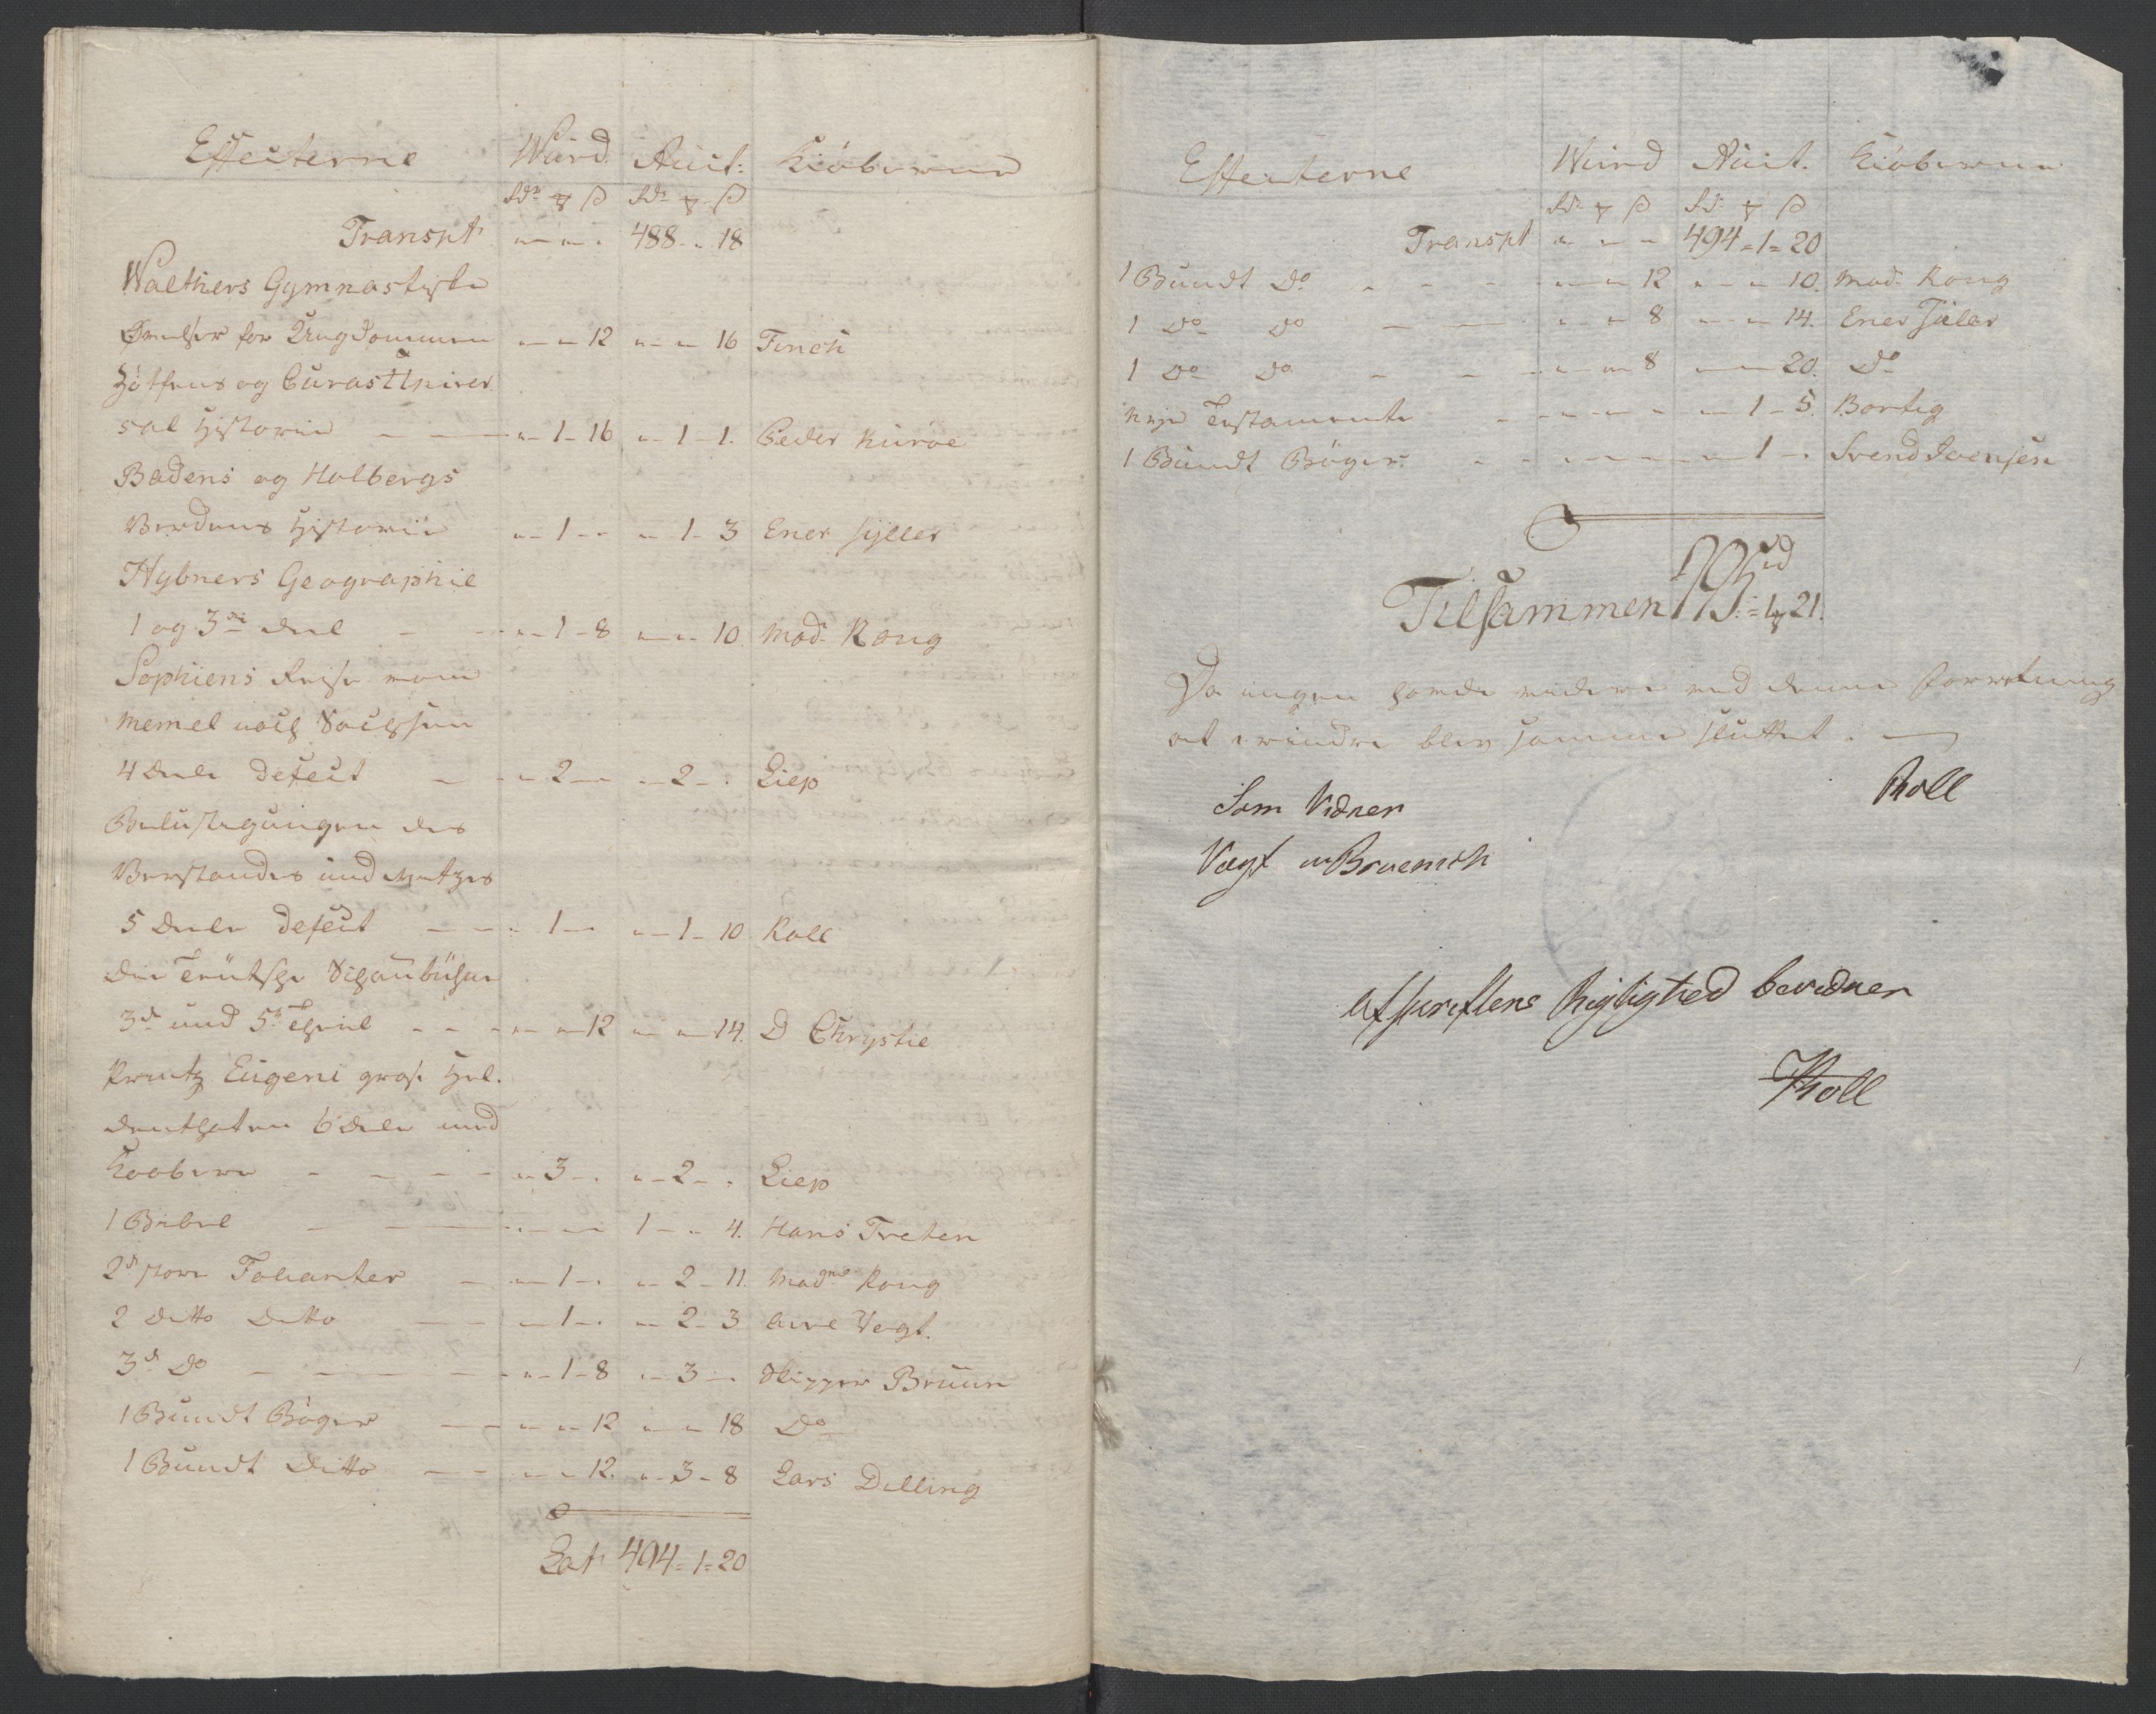 Effecterne Wurd. Auct: Kiöberne
Rdr ¥ ß Rdr ¥ ß
Transpt " — " — " 488 – " 18
Walthers Gymnastiske
Øvelser for Ungdommen " — " – 12 " — " – 16 Finch
Höffens og Curas Univer
sal Historie — — " – 1 – 16 " – 1 – 1. Peder Kuroe
Badens og Holbergs
Verdens Historie " – 1 – " " – 1 – 3 Ener Syller
Hybners Geographie
1 og 3die Deel — " – 1 – 8 " — " – 10 Mad. Roug
Sophiens Reise von
Memel nach Sachsen
4 Dele Defect — " – 2 — " " – 2 – " Liep
Belustigungen des
Verstandes und Witzes
5 Dele Defect — — " 1 – " " – 1 – 10 Koll
Die Teutsche Schaubühne
3d und 5t Theil - - - " — " – 12 " — " – 14. D Chrystie
Printz Eugeni grose Hel-
denthaten 6 Dele med
Kaabere - - - - " – 3 – " " – 2 – " Liep
1 Bibel — — — " — " 1 – " 4. Hans Treten
2d store Folianter — " – 1 – " " – 2 – 11. Madme Roug
2 Ditto Ditto — — " – 1 – " " – 2 – 3 Vegt.
3d Do — — — — " – 1 – 8 " – 3 – " Skipper Bruun
1 Bundt Böger — — " — " – 12 " — " – 18 Do
1 Bundt Ditto — — " — " – 12. " – 3 – 8 Lars Dilling
Lat. 494 = 1 = 20
Effecterne Wurd Auct. Kiöberne
Rdr ¥ ß Rdr ¥ ß
Transpt " — " — " 494 = 1 = 20
1 Bundt Do - - - " — " – 12 " — " – 10. Mad. Roug
1 Do Do — — " — " – 8 " — " – 14. Ener Syler
1 Do Do - - - " — " – 8 " — " – 20. Do
Nye Testamente - - - - " — 1 – 5. Bortig
1 Bundt Böger. - - - - " – 1 – " Svend Svensen
Tilsammen 495rd = 1¥ 21.
Da ingen havde videre ved denne Forretning
at erindre blev samme sluttet. —
Koll
Som Vidner
Vegt Bruenich
Afskriftens Rigtighed bevidner
Koll